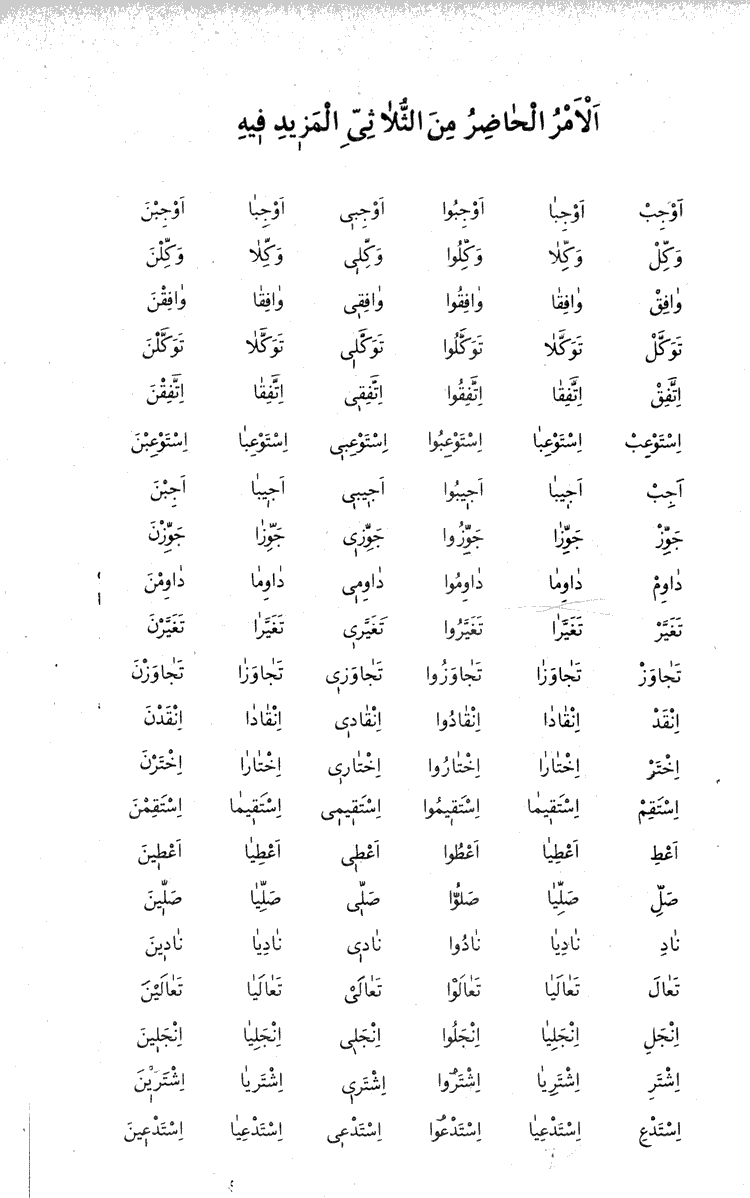 اَلْاَمْرُ الْحٰاضِرُ مِنَ الثُّلٰاثِىِّ الْمَز۪يدِ ف۪يهِ
اَوْجِبْ اَوْجِبٰا اَوْجِبُوا اَوْجِب۪ى اَوْجِبٰا اَوْجِبْنَ
وَكِّلْ وَكِّلٰا وَكِّلُوا وَكِّل۪ى وَكِّلٰا وَكِّلْنَ
وٰافِقْ وٰافِقٰا وٰافِقُوا وٰافِق۪ى وٰافِقٰا وٰافِقْنَ
تَوَكَّلْ تَوَكَّلٰا تَوَكَّلُوا تَوَكَّل۪ى تَوَكَّلٰا تَوَكَّلْنَ
اِتَّفِقْ اِتَّفِقٰا اِتَّفِقُوا اِتَّفِق۪ى اِتَّفِقٰا اِتَّفِقْنَ
اِسْتَوْعِبْ اِسْتَوْعِبٰا اِسْتَوْعِبُوا اِسْتَوْعِب۪ى اِسْتَوْعِبٰا اِسْتَوْعِبْنَ
اَجِبْ اَج۪يبٰا اَج۪يبُوا اَج۪يب۪ى اَج۪يبٰا اَجِبْنَ
جَوِّزْ جَوِّزٰا جَوِّزُوا جَوِّز۪ى جَوِّزٰا جَوِّزْنَ
دٰاوِمْ دٰاوِمٰا دٰاوِمُوا دٰاوِم۪ى دٰاوِمٰا دٰاوِمْنَ
تَغَيَّرْ تَغَيَّرٰا تَغَيَّرُوا تَغَيَّر۪ى تَغَيَّرٰا تَغَيَّرْنَ
تَجٰاوَزْ تَجٰاوَزٰا تَجٰاوَزُوا تَجٰاوَز۪ى تَجٰاوَزٰا تَجٰاوَزْنَ
اِنْقَدْ اِنْقٰادٰا اِنْقٰادُوا اِنْقٰاد۪ى اِنْقٰادٰا اِنْقَدْنَ
اِخْتَرْ اِخْتٰارٰا اِخْتٰارُوا اِخْتٰار۪ى اِخْتٰارٰا اِخْتَرْنَ
اِسْتَقِمْ اِسْتَق۪يمٰا اِسْتَق۪يمُوا اِسْتَق۪يم۪ى اِسْتَق۪يمٰا اِسْتَقِمْنَ
اَعْطِ اَعْطِيٰا اَعْطُوا اَعْط۪ى اَعْطِيٰا اَعْط۪ينَ
صَلِّ صَلِّيٰا صَلُّوا صَلّ۪ى صَلِّيٰا صَلّ۪ينَ
نٰادِ نٰادِيٰا نٰادُوا نٰاد۪ى نٰادِيٰا نٰاد۪ينَ
تَعٰالَ تَعٰالَيٰا تَعٰالَوْا تَعٰالَىْ تَعٰالَيٰا تَعٰالَيْنَ
اِنْجَلِ اِنْجَلِيٰا اِنْجَلُوا اِنْجَل۪ى اِنْجَلِيٰا اِنْجَل۪ينَ
اِشْتَرِ اِشْتَرِيٰا اِشْتَرُوا اِشْتَر۪ى اِشْتَرِيٰا اِشْتَر۪يْنَ
اِسْتَدْعِ اِسْتَدْعِيٰا اِسْتَدْعُوا اِسْتَدْع۪ى اِسْتَدْعِيٰا اِسْتَدْع۪ينَ